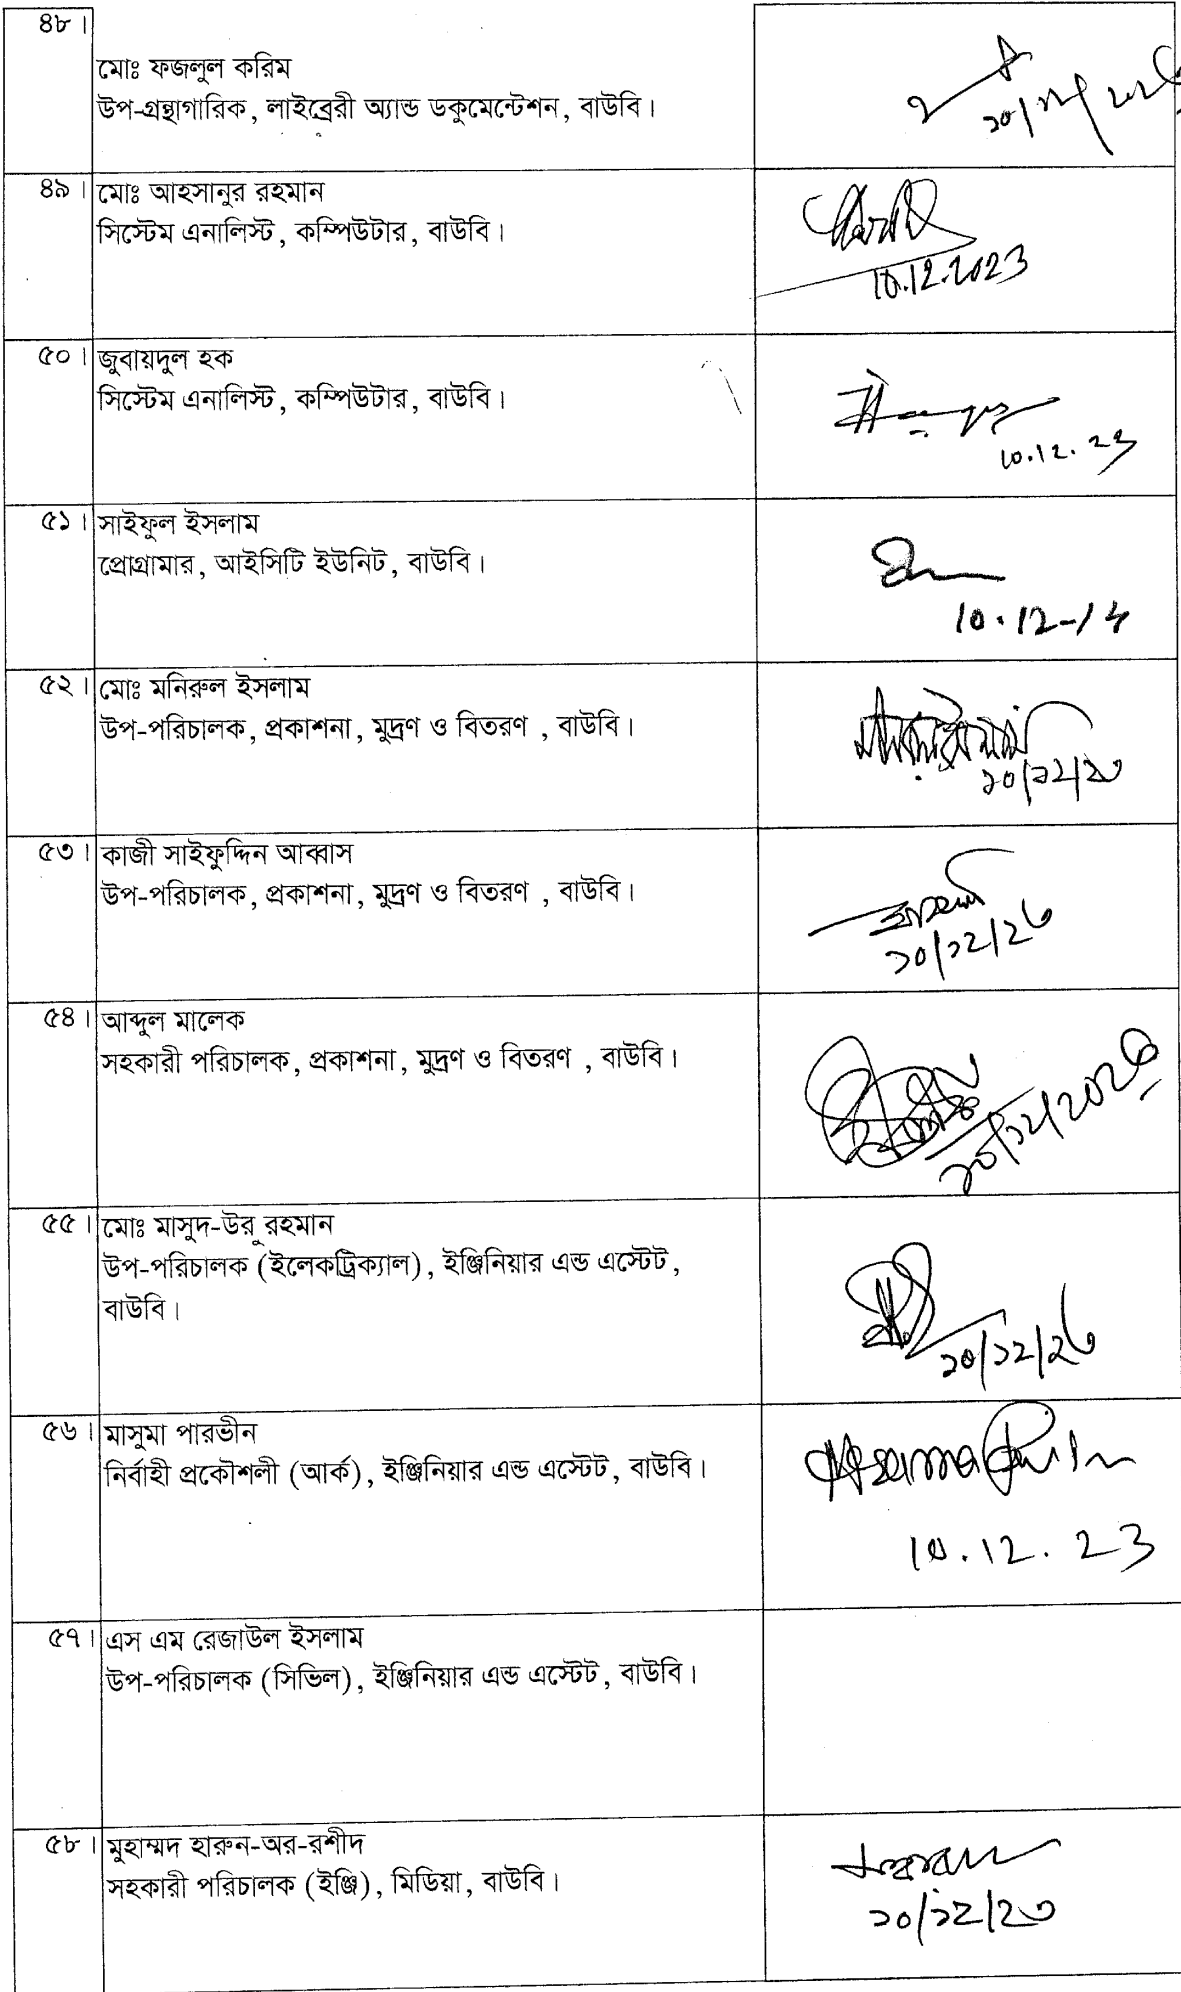 ৪৮।
মোঃ ফজলুল করিম
উপ-গ্রন্থাগারিক, লাইব্রেরী অ্যান্ড ডকুমেন্টেশন, বাউবি।
৪৯। মোঃ আহসানুর রহমান
সিস্টেম এনালিস্ট, কম্পিউটার, বাউবি।
10.12.2023
৫০। জুবায়দুল হক
সিস্টেম এনালিস্ট, কম্পিউটার, বাউবি।
10.12.23
৫১। সাইফুল ইসলাম
প্রোগ্রামার, আইসিটি ইউনিট, বাউবি।
৫২। মোঃ মনিরুল ইসলাম
উপ-পরিচালক, প্রকাশনা, মুদ্রণ ও বিতরণ , বাউবি।
১০/১২/২৩
৫৩। কাজী সাইফুদ্দিন আব্বাস
উপ-পরিচালক, প্রকাশনা, মুদ্রণ ও বিতরণ , বাউবি।
১০/১২/২৩
৫৪। আব্দুল মালেক
সহকারী পরিচালক, প্রকাশনা, মুদ্রণ ও বিতরণ , বাউবি।
১০/১২/২০২৩
৫৫। মোঃ মাসুদ-উর্ রহমান
উপ-পরিচালক (ইলেকট্রিক্যাল), ইঞ্জিনিয়ার এন্ড এস্টেট,
বাউবি।
১০/১২/২৩
৫৬। মাসুমা পারভীন
নির্বাহী প্রকৌশলী (আর্ক), ইঞ্জিনিয়ার এন্ড এস্টেট, বাউবি।
10.12.23
৫৭। এস এম রেজাউল ইসলাম
উপ-পরিচালক (সিভিল), ইঞ্জিনিয়ার এন্ড এস্টেট, বাউবি।
৫৮। মুহাম্মদ হারুন-অর-রশীদ
সহকারী পরিচালক (ইঞ্জি), মিডিয়া, বাউবি।
১০/১২/২৩